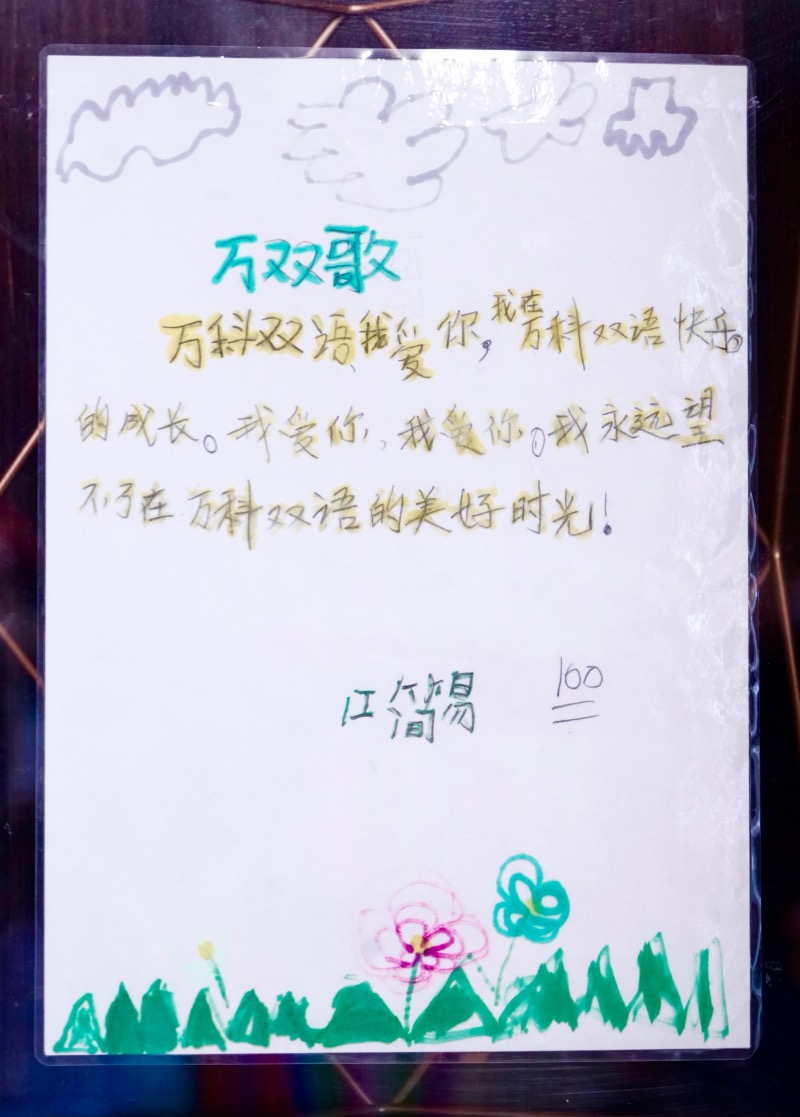 万双歌
万科双语我爱你，我在万科双语快乐
的成长。我爱你，我爱你。我永远望
不了在万科双语的美好时光！
江简易 100